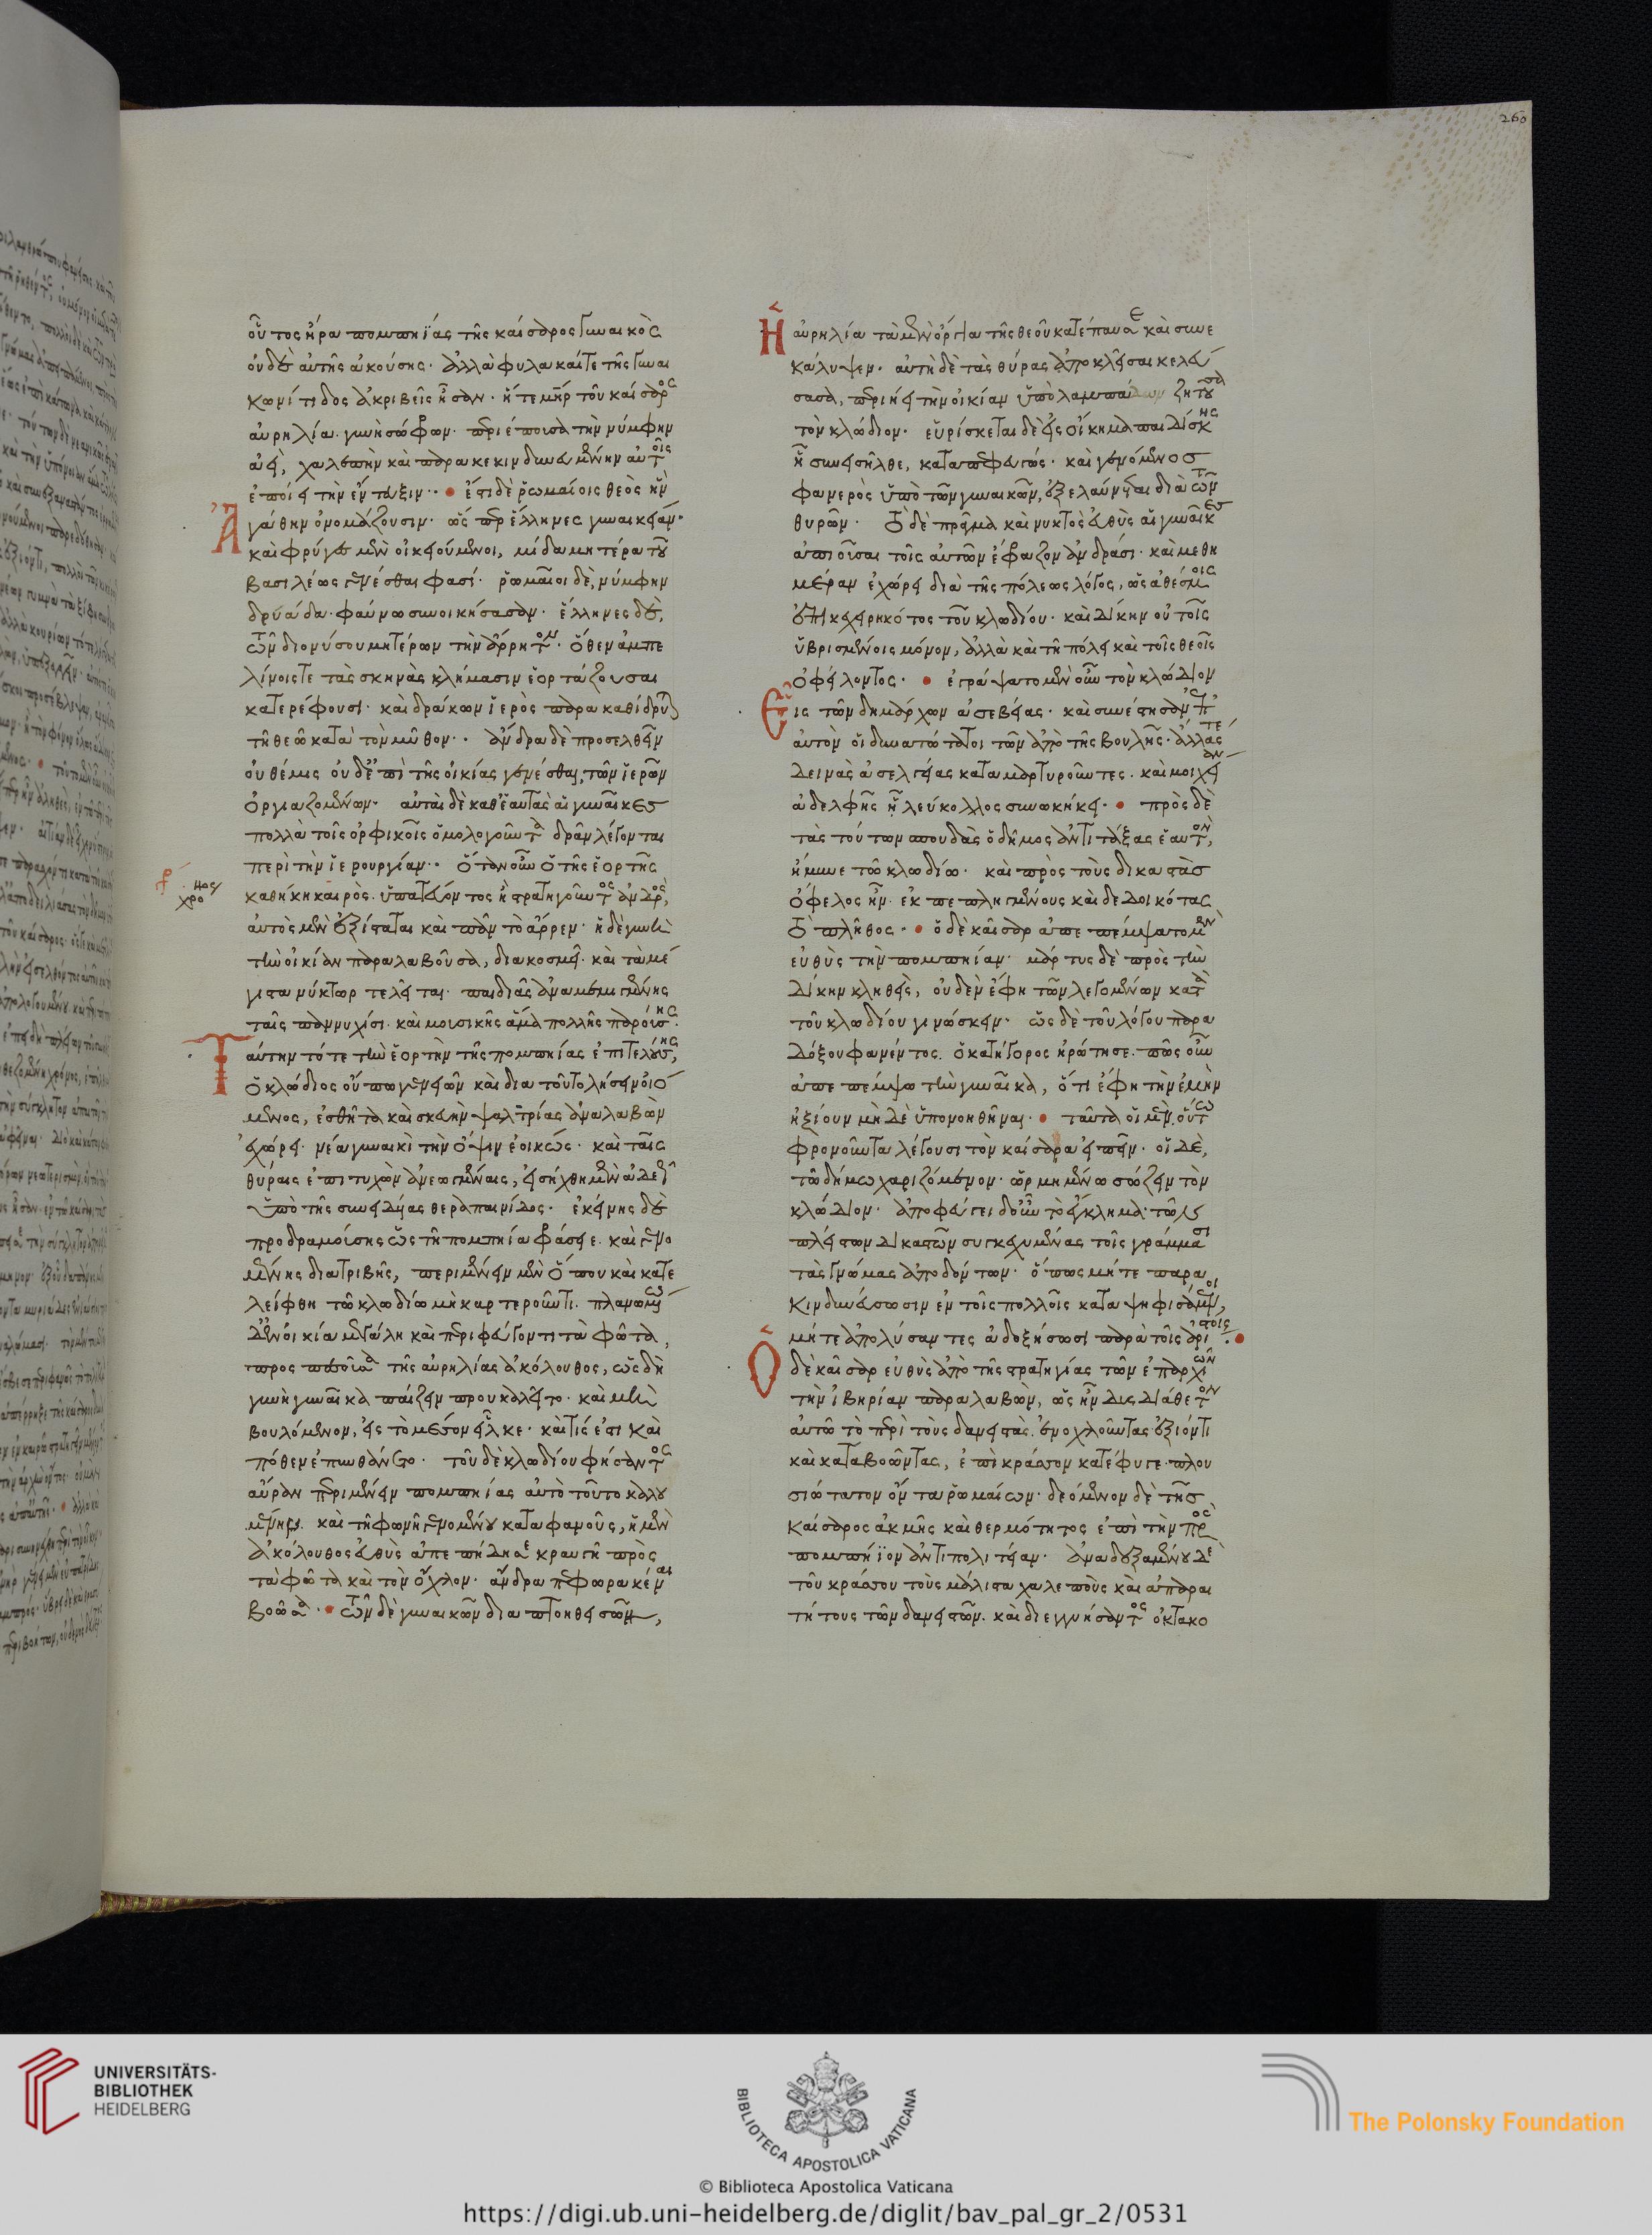 οὗτος ἤρα πομπηΐας τῆς καίσαρος γυναικὸς
οὐδὲ αὐτῆς ἀκούσης. ἀλλὰ φυλακαί τε τῆς γυναι
κωνίτιδος ἀκριβεῖς ἦσαν. ἥ τε μῆρ τοῦ καίσαρος
αὐρηλία. γυνὴ σώφρων. περιέπουσα τὴν νύμφην
ἀεὶ, χαλεπὴν καὶ παρακεκινδυνευμένην αὐτοῖς
ἐποίει τὴν ἔντευξιν. • ἔστι δὲ ῥωμαίοις θεὸς ἣν
Ἀγάθην ὀνομάζουσιν. ὥσπερ ἕλληνες γυναικείαν.
καὶ φρύγες μὲν οἰκειούμενοι, μίδα μητέρα τοῦ
βασιλέως γενέσθαι φασί. ῥωμαῖοι δὲ, νύμφην
δρυάδα. φαύνω συνοικήσασαν. ἕλληνες δὲ,
τῶν διονύσου μητέρων τὴν ἄρρητον. ὅθεν ἀμπε
λίνοις τε τὰς σκηνὰς κλήμασιν ἑορτάζουσαι
κατερέφουσι. καὶ δράκων ἱερὸς παρακαθίδρυται
τῆ θεῶ κατὰ τὸν μῦθον. ἄνδρα δὲ προσελθεῖν
οὐ θέμις οὐδ' ἐπὶ τῆς οἰκίας γενέσθαι, τῶν ἱερῶν
ὀργιαζομένων. αὐταὶ δὲ καθ' ἑαυτὰς αἱ γυναῖκες
πολλὰ τοῖς ὀρφικοῖς ὁμολογοῦντα δρᾶν λέγονται
περὶ τὴν ἱερουργίαν. ὅταν οὖν ὁ τῆς ἑορτῆς
καθήκη καιρὸς. ὑπατεύοντος ἢ στρατηγοῦντος ἀνδρός,
αὐτὸς μὲν ἐξίσταται καὶ πᾶν τὸ ἄρρεν. ἡ δὲ γυνὴ
τὴν οἰκίαν παραλαβοῦσα, διακοσμεῖ. καὶ τὰ μέ
γιστα νύκτωρ τελεῖται. παιδιᾶς ἀναμεμιγμένης
ταῖς παννυχίσι. καὶ μουσικῆς ἅμα πολλῆς παρούσης.
Ταύτην τότε τὴν ἑορτὴν τῆς πομπηίας ἐπιτελούσης,
ὁ κλώδιος οὔπω γενειῶν καὶ δια τοῦτο λήσειν οἰό
μενος, ἐσθῆτα καὶ σκευὴν ψαλτρίας ἀναλαβὼν
ἐχώρει. νέα γυναικὶ τὴν ὄψιν ἐοικώς. καὶ ταῖς
θύραις ἐπιτυχὼν ἀνεωγμέναις, εἰσήχθη μὲν ἀδεῶς
ὑπὸ τῆς συνειδυίας θεραπαινίδος. ἐκείνης δὲ
προδραμούσης ὡς τῆ πομπηία φράσειε. καὶ γενο
μένης διατριβῆς, περιμένειν μὲν ὅπου καὶ κατε
λείφθη τῶ κλωδίω μὴ καρτεροῦντι. πλανωμένω
δ' ἐν οἰκία μεγάλη καὶ περιφεύγοντι τὰ φῶτα,
προσπεσοῦσα τῆς αὐρηλίας ἀκόλουθος, ὡς δὴ
γυνὴ γυναῖκα παίζειν προυκαλεῖτο. καὶ μὴ
βουλόμενον, εἰς τὸ μέσον εἷλκε. καὶ τίς ἐστι καὶ
πόθεν ἐπυνθάνετο. τοῦ δὲ κλωδίου φήσαντος
αὔραν περιμένειν πομπηίας αὐτὸ τοῦτο καλου
μένην. καὶ τῆ φωνῆ γενομένου καταφανοῦς, ἡ μὲν
ἀκόλουθος εὐθὺς ἀπεπήδησε κραυγῆ πρὸς
τὰ φῶτα καὶ τὸν ὄχλον. ἄνδρα πεφωρακέναι
βοῶσα. • τῶν δὲ γυναικῶν διαπτοηθεισῶν,
Ἡ αὐρηλία τὰ μὲν ὄργια τῆς θεοῦ κατέπαυσε καὶ συνε
κάλυψεν. αὐτὴ δὲ τὰς θύρας ἀποκλεῖσαι κελεύ
σασα, περιήει τὴν οἰκίαν ὑπὸ λαμπάδων ζητοῦσα
τὸν κλώδιον. εὑρίσκεται δὲ εἰς οἴκημα παιδίσκης
ἧ συνεισῆλθε, καταπεφευγώς. καὶ γενόμενος
φανερὸς ὑπὸ τῶν γυναικῶν, ἐξελαύνεται διὰ τῶν
θυρῶν. τὸ δὲ πρᾶγμα καὶ νυκτὸς εὐθὺς αἱ γυναῖκες
ἀπιοῦσαι τοῖς αὐτῶν ἔφραζον ἀνδράσι. καὶ μεθ' ἡ
μέραν ἐχώρει διὰ τῆς πόλεως λόγος, ὡς ἀθέσμοις
ἐπικεχειρηκότος τοῦ κλωδίου. καὶ δίκην οὐ τοῖς
ὑβρισμένοις μόνον, ἀλλὰ καὶ τῆ πόλει καὶ τοῖς θεοῖς
ὀφείλοντος. • ἐγράψατο μὲν οὖν τὸν κλώδιον
Εἷς τῶν δημάρχων ἀσεβείας. καὶ συνέστησαν ἐπ'
αὐτὸν οἱ δυνατώτατοι τῶν ἀπὸ τῆς βουλῆς. ἄλλας τε
δεινὰς ἀσελγείας καταμαρτυροῦντες. καὶ μοιχείαν
ἀδελφῆς ἧ λεύκολλος συνωκήκει. • πρὸς δὲ
τὰς τούτων σπουδὰς ὁ δῆμος ἀντιτάξας ἑαυτόν,
ἤμυνε τῶ κλωδίω. καὶ πρὸς τοὺς δικαστὰς
ὄφελος ἦν. ἐκπεπληγμένους καὶ δεδοικότας
τὸ πλῆθος. • ὁ δὲ καῖσαρ ἀπεπέμψατο μὲν
εὐθὺς τὴν πομπηίαν. μάρτυς δὲ πρὸς τὴν
δίκην κληθεὶς, οὐδὲν ἔφη τῶν λεγομένων κατὰ
τοῦ κλωδίου γινώσκειν. ὡς δὲ τοῦ λόγου παρα
δόξου φανέντος. ὁ κατήγορος ἠρώτησε. πῶς οὖν
ἀπεπέμψω τὴν γυναῖκα, ὅτι ἔφη τὴν ἐμὴν
ἠξίουν μὴ δὲ ὑπονοηθῆναι. • ταῦτα οἱ μὲν, οὕτω
φρονοῦντα λέγουσι τὸν καίσαρα εἰπεῖν. οἱ δὲ,
τῶ δήμω χαριζόμενον. ὡρμημένω σώζειν τὸν
κλώδιον. ἀποφεύγει δ' οὖν τὸ ἔγκλημα. τῶν
πλείστων δικαστῶν συγκεχυμένας τοῖς γράμμασι
τὰς γνώμας ἀποδόντων. ὅπως μήτε παρα
κινδυνεύσωσιν ἐν τοῖς πολλοῖς καταψηφισάμενοι,
μήτε ἀπολύσαντες ἀδοξήσωσι παρὰ τοῖς ἀρίστοις. •
Ὁ δὲ καῖσαρ εὐθὺς ἀπὸ τῆς στρατηγίας τῶν ἐπαρχιῶν
τὴν ἰβηρίαν παραλαβὼν, ὡς ἦν δυσδιάθετον
αὐτῶ τὸ περὶ τοὺς δανειστὰς. ἐνοχλοῦντας ἐξιόντι
καὶ καταβοῶντας, ἐπὶ κράσσον κατέφυγε. πλου
σιώτατον ὄντα ῥωμαίων. δεόμενον δὲ τῆς
καίσαρος ἀκμῆς καὶ θερμότητος ἐπὶ τὴν πρὸς
πομπήϊον ἀντιπολιτείαν. ἀναδεξαμένου δὲ
τοῦ κράσσου τοὺς μάλιστα χαλεποὺς καὶ ἀπαραι
τήτους τῶν δανειστῶν. καὶ διεγγυήσαντος ὀκτακο
260
UNIVERSITÄTS-
BIBLIOTHEK
HEIDELBERG
BIBLIOTECA APOSTOLICA VATICANA
The Polonsky Foundation
© Biblioteca Apostolica Vaticana
https://digi.ub.uni-heidelberg.de/diglit/bav_pal_gr_2/0531